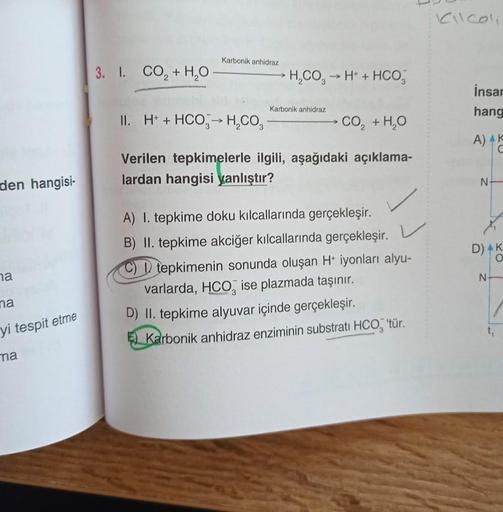 Kılcal
3. I. CO₂ + H₂O —Karbonik anhidraz→ H₂CO₃ → H⁺ + HCO₃⁻
II. H⁺ + HCO₃⁻ → H₂CO₃ —Karbonik anhidraz→ CO₂ + H₂O
Verilen tepkimelerle ilgili, aşağıdaki açıklama-
lardan hangisi yanlıştır?
A) I. tepkime doku kılcallarında gerçekleşir.
B) II. tepkime akciğer kılcallarında gerçekleşir.
C) I. tepkimenin sonunda oluşan H⁺ iyonları alyu-
varlarda, HCO₃⁻ ise plazmada taşınır.
D) II. tepkime alyuvar içinde gerçekleşir.
E) Karbonik anhidraz enziminin substratı HCO₃⁻'tür.
den hangisi-
na
na
yi tespit etme
ma
İnsan
hang
A) K
N
D) K
O
N
t₁